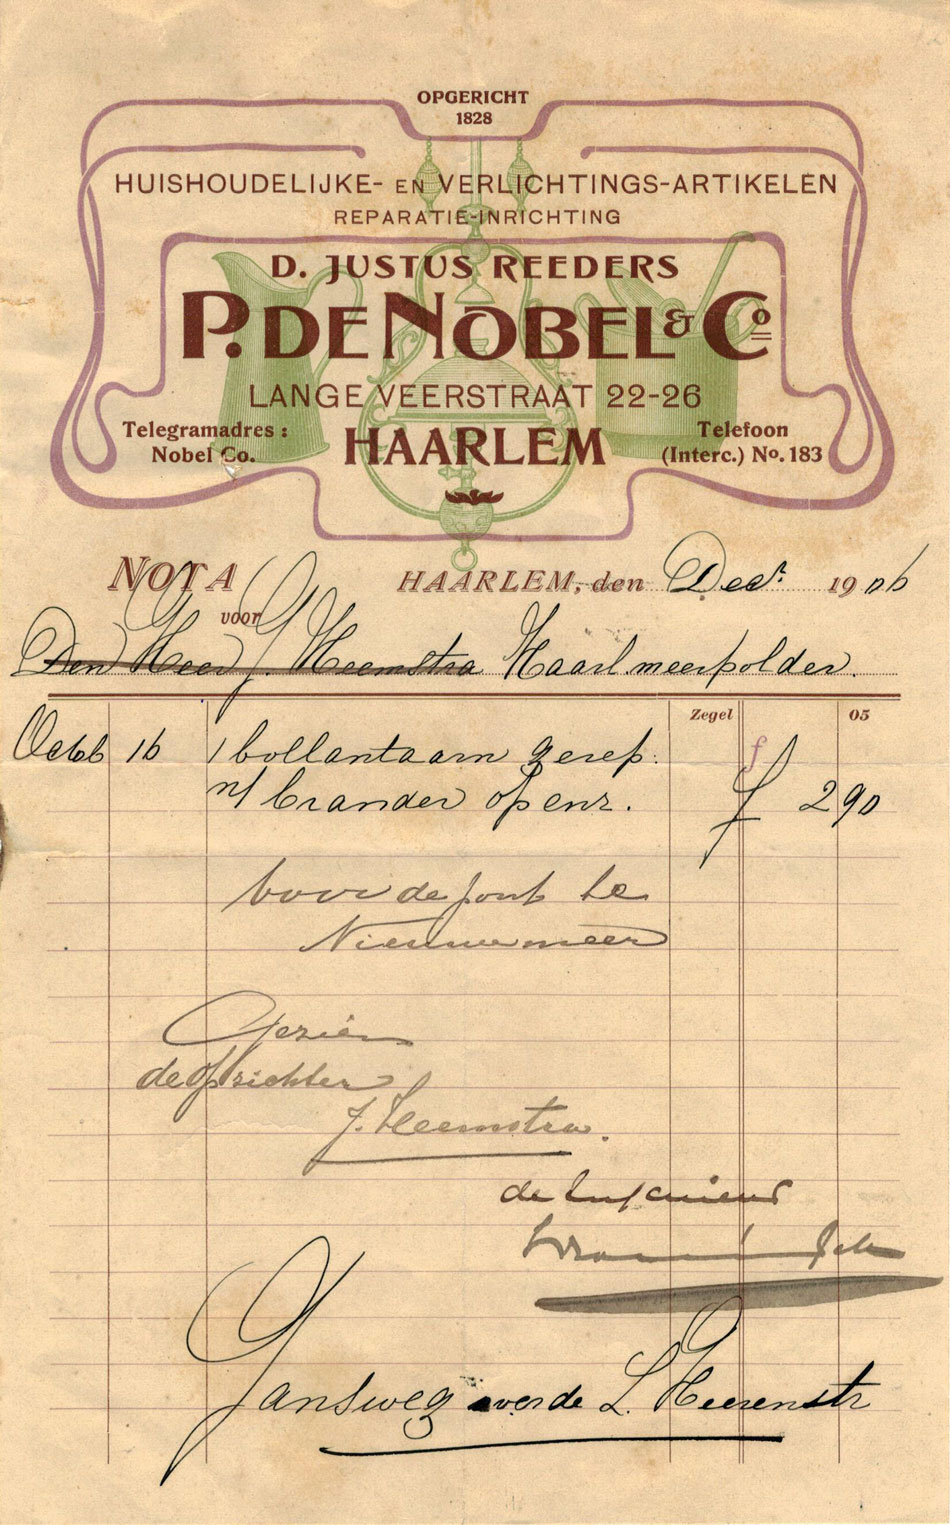 OPGERICHT
1828
HUISHOUDELIJKE- EN VERLICHTINGS-ARTIKELEN
REPARATIE-INRICHTING
D. JUSTUS REEDERS
P. DE NOBEL & Co
LANGE VEERSTRAAT 22-26
Telegramadres:
Nobel Co.
HAARLEM
Telefoon
(Interc.) No. 183
NOTA HAARLEM, den Decr. 1906
voor
Den Heer J. Heemstra Haarl.meerpolder.
Zegel 05
Octob 16 1 bollantaarn gerep. f
n/ brander op enz. f 2 90
voor de pont te
Nieuwemeer
Gezien
de Opzichter
J. Heemstra.
de Ingenieur
Jansweg over de L. Heerenstr